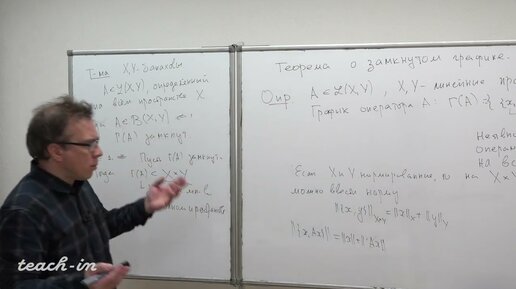 Т-ма X,Y-Банаховы
A∈ℒ(X,Y), определённый
на всём пространстве X
A∈B(X,Y) ⇔
Γ(A) замкнут.
Пусть Γ(A) замкнут
Γ(A) ⊂ X×Y
Теорема о замкнутом графике.
Опр A∈ℒ(X,Y), X,Y-линейные
График оператора A: Γ(A)
на
Если X и Y нормированные, то на X×Y
можно ввести норму
‖{x,y}‖X×Y=‖x‖X+‖y‖Y
‖{x,Ax}‖=‖x‖+‖Ax‖
teach-in